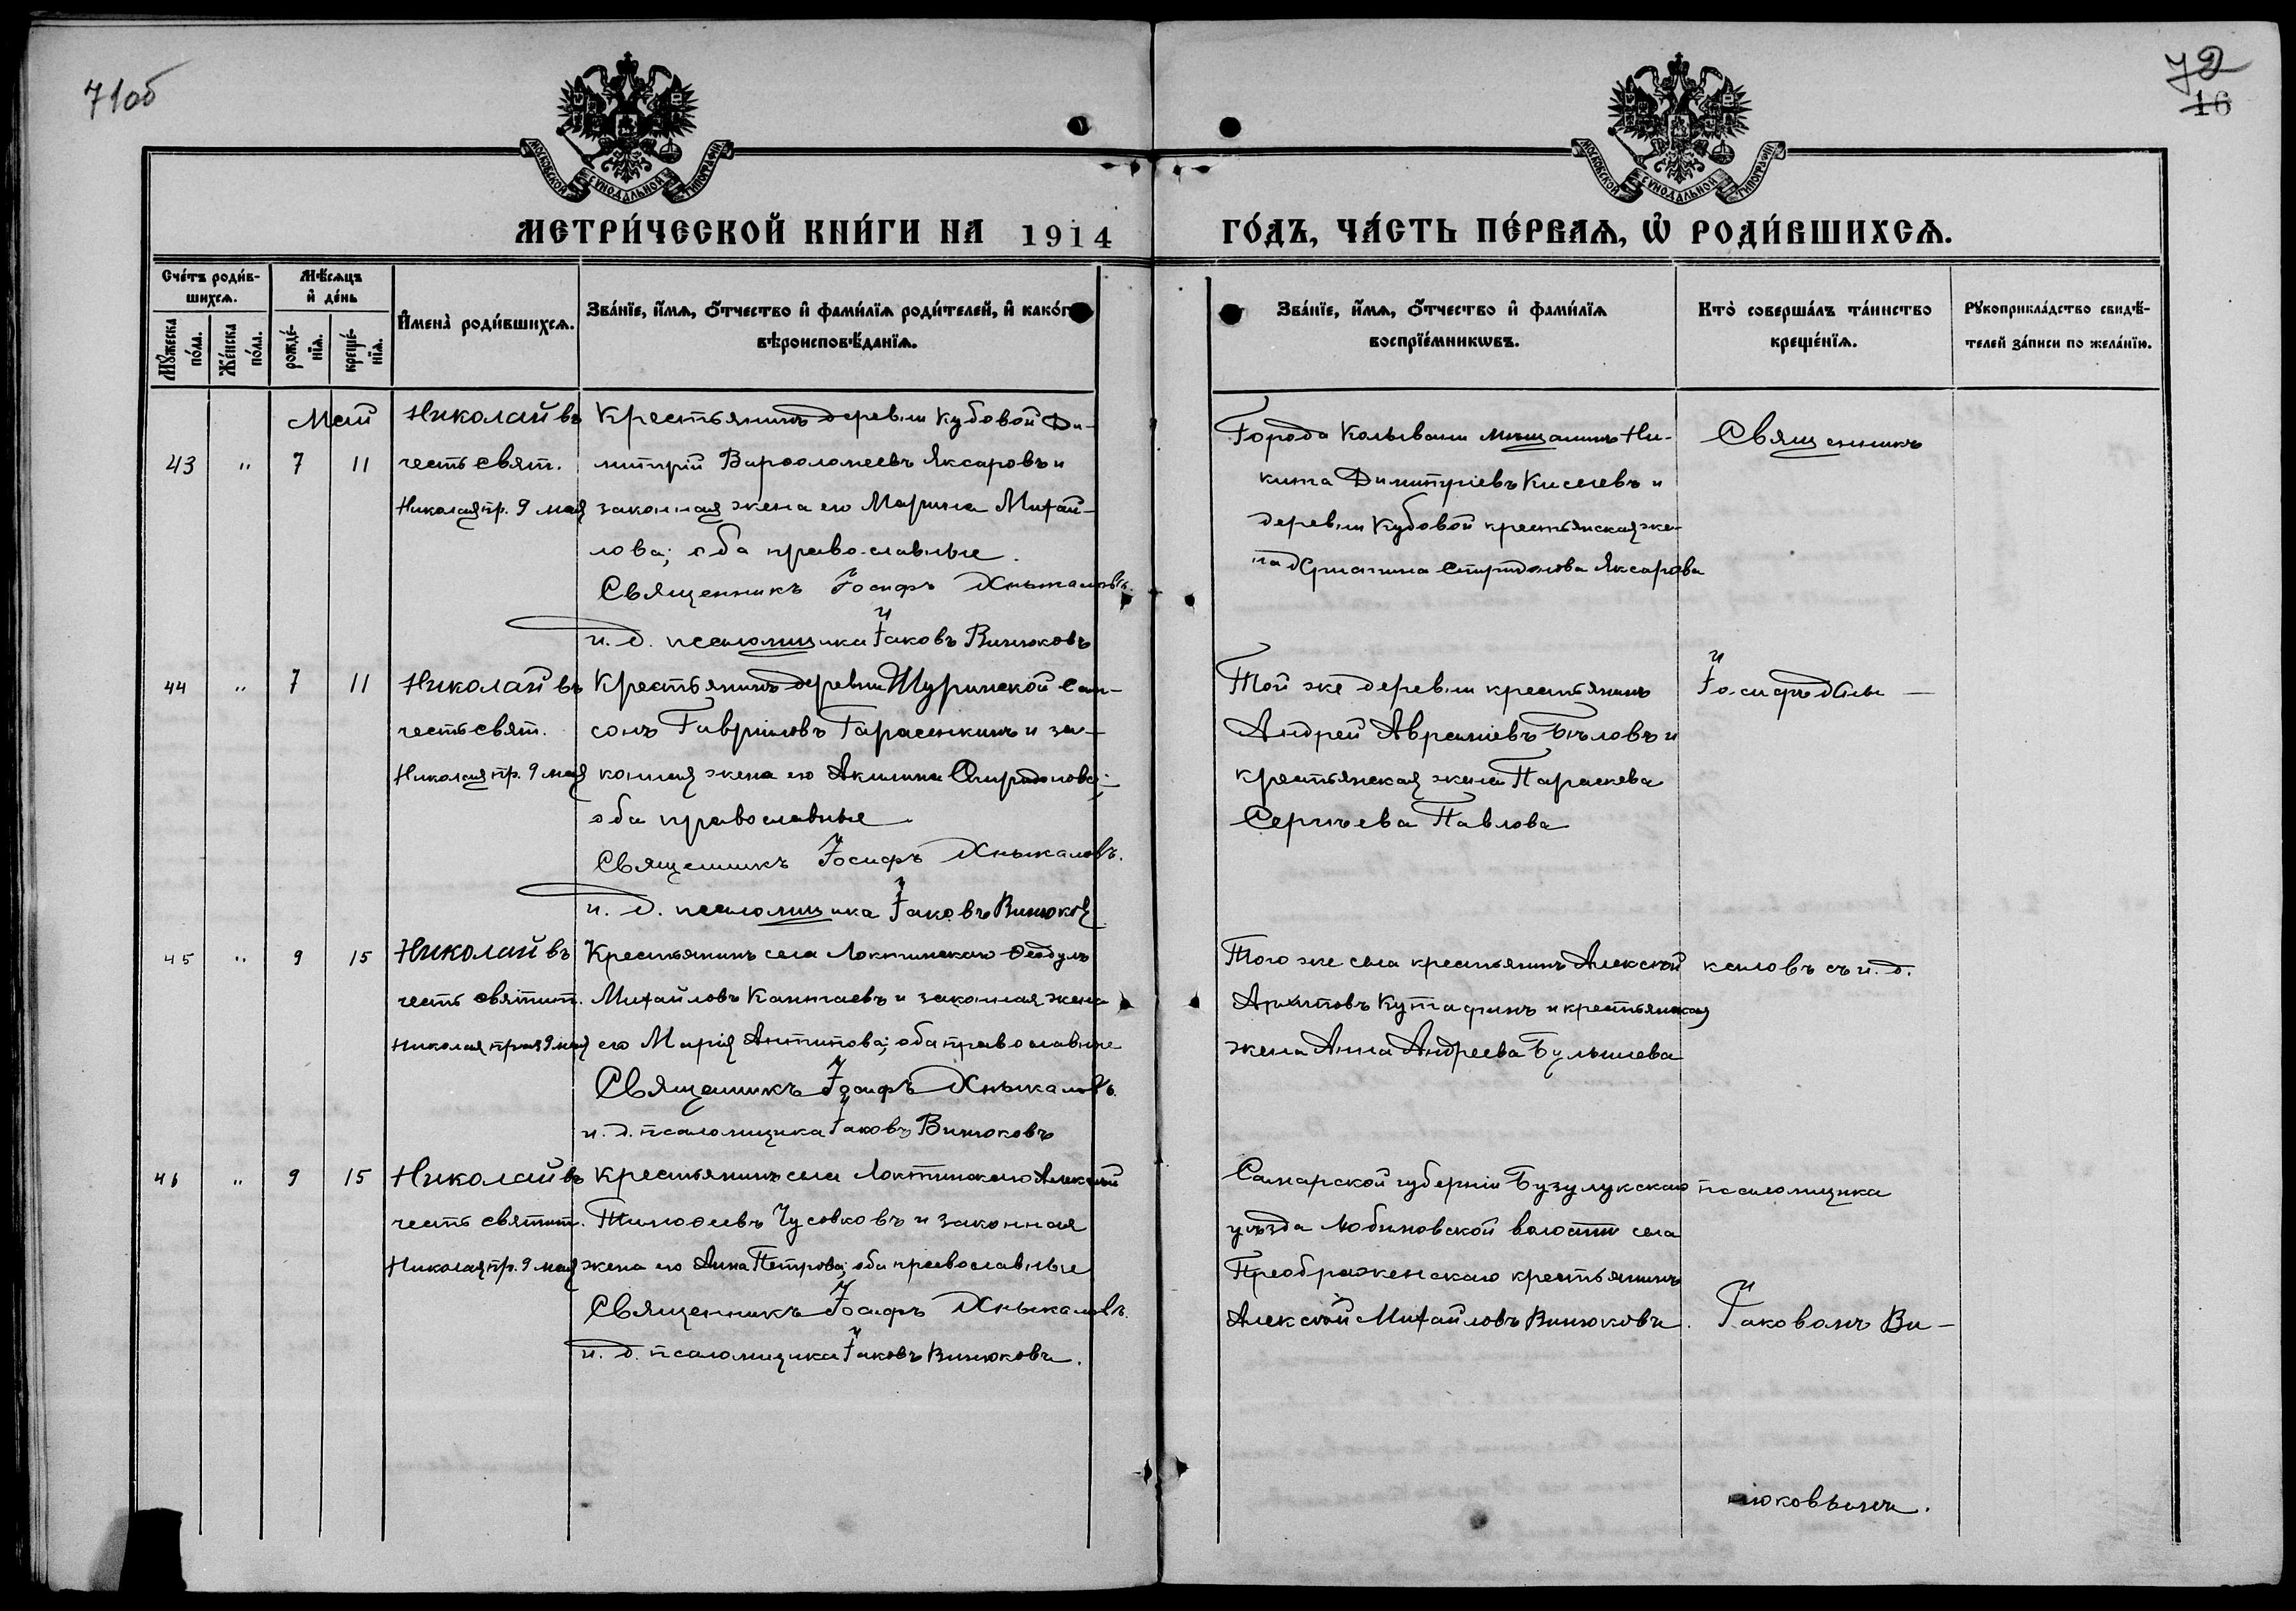 71об
72
16
МОСКОВСКОЙ СѴНОДАЛЬНОЙ ТИПОГРАФІИ
МОСКОВСКОЙ СѴНОДАЛЬНОЙ ТИПОГРАФІИ
МЕТРИ́ЧЕСКОЙ КНИ́ГИ НА 1914
ГО́ДЪ, ЧА́СТЬ ПЕ́РВАѦ, Ѡ҆ РОДИ́ВШИХСѦ.
Сче́тъ роди́в-
шихсѧ.
Мꙋ́жеска по́ла.
Же́нска по́ла.
Мѣ́сѧцъ
и҆ де́нь
рожде́-
нїѧ.
креще́-
нїѧ.
И҆мена̀ роди́вшихсѧ.
Зва́нїе, и҆́мѧ, ѻ҆́тчество и҆ фами́лїѧ роди́телей, и҆ како́г
вѣроисповѣ́данїѧ.
Зва́нїе, и҆́мѧ, ѻ҆́тчество и҆ фами́лїѧ
воспрїе́мникѡвъ.
Кто̀ соверша́лъ та́инство
креще́нїѧ.
Рꙋкоприкла́дство свидѣ́-
телей за́писи по жела́нїю.
Май
43 " 7 11
Николай въ
честь свят.
Николая пр. 9 мая
Крестьянинъ деревни Кубовой Ди-
митрій Варѳоломеевъ Яксаровъ и
законная жена его Марина Михай-
лова; оба православные.
Священникъ Іосифъ
и. д. псаломщика Іаковъ Винюковъ
Города Колывани мѣщанинъ Ни-
кита Димитріевъ Киселевъ и
деревни Кубовой крестьянская же-
на Спиридонова Яксарова
Священникъ
44 " 7 11
Николай въ
честь свят.
Николая пр. 9 мая
Крестьянинъ деревни Шуринской Сам-
сонъ Гавріиловъ Тарасенкинъ и за-
конная жена его Акилина Спиридонова;
оба православные
Священникъ Іосифъ
и. д. псаломщика Іаковъ Винюков
Той же деревни крестьянинъ
Андрей Авраміевъ Бѣловъ и
крестьянская жена Параскева
Сергѣева Павлова
Іосифъ
45 " 9 15
Николай въ
честь святит.
Николая прая 9 мая
Крестьянинъ села Локтинскаго Ѳеодулъ
Михайловъ и законная жена
его Марія Антипова; оба православные
Священникъ Іосифъ
и. д. псаломщика Іаковъ Винюковъ
Того же села крестьянинъ Алексѣй
Архиповъ Кутафинъ и крестьянская
жена Анна Андреева
каловъ съ и. д.
46 " 9 15
Николай въ
честь святит.
Николая пр. 9 мая
крестьянинъ села Локтинскаго Алексѣй
Тимоѳеевъ Чусовковъ и законная
жена его Анна Петрова; оба православные
Священникъ Іосифъ
и. д. псаломщика Іаковъ Винюковъ.
Самарской губерніи Бузулукскаго
уѣзда волости села
Преображенскаго крестьянинъ
Алексѣй Михайловъ Винюковъ.
псаломщика
Іаковомъ Ви-
нюковымъ.